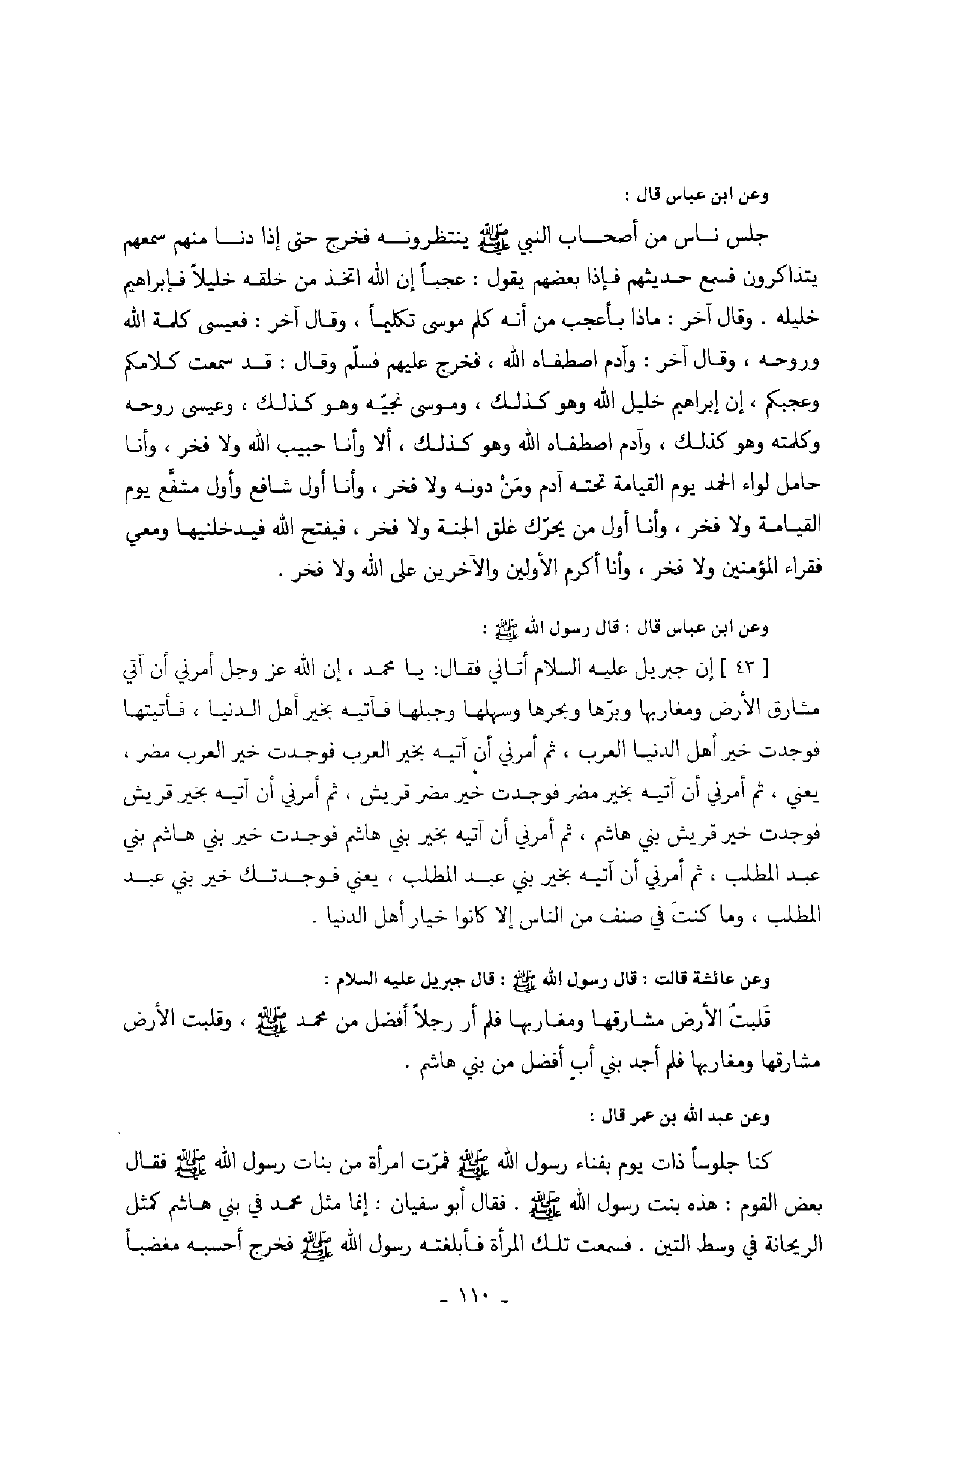 وعن ابن عباس قال :
جلس ناس من أصحاب النبي ﷺ ينتظرونه فخرج حتى إذا دنا منهم سمعهم
يتذاكرون فسمع حديثهم فإذا بعضهم يقول : عجباً إن الله اتخذ من خلقه خليلاً فإبراهيم
خليله . وقال آخر : ماذا بأعجب من أنه كلم موسى تكليماً ، وقال آخر : فعيسى كلمة الله
وروحه ، وقال آخر : وآدم اصطفاه الله ، فخرج عليهم فسلّم وقال : قد سمعت كلامكم
وعجبكم ، إن إبراهيم خليل الله وهو كذلك ، وموسى نجيّه وهو كذلك ، وعيسى روحه
وكلمته وهو كذلك ، وآدم اصطفاه الله وهو كذلك ، ألا وأنا حبيب الله ولا فخر ، وأنا
حامل لواء الحمد يوم القيامة تحته آدم ومَنْ دونه ولا فخر ، وأنا أول شافع وأول مشفَّع يوم
القيامة ولا فخر ، وأنا أول من يحرّك غلق الجنة ولا فخر ، فيفتح الله فيدخلنيها ومعي
فقراء المؤمنين ولا فخر ، وأنا أكرم الأولين والآخرين على الله ولا فخر .
وعن ابن عباس قال : قال رسول الله ﷺ :
[ ٤٣ ] إن جبريل عليه السلام أتاني فقال: يا محمد ، إن الله عز وجل أمرني أن آتي
مشارق الأرض ومغاربها وبرّها وبحرها وسهلها وجبلها فآتيه بخير أهل الدنيا ، فأتيتها
فوجدت خير أهل الدنيا العرب ، ثم أمرني أن آتيه بخير العرب فوجدت خير العرب مضر ،
يعني ، ثم أمرني أن آتيه بخير مضر فوجدت خير مضر قريش ، ثم أمرني أن آتيه بخير قريش
فوجدت خير قريش بني هاشم ، ثم أمرني أن آتيه بخير بني هاشم فوجدت خير بني هاشم بني
عبد المطلب ، ثم أمرني أن آتيه بخير بني عبد المطلب ، يعني فوجدتك خير بني عبد
المطلب ، وما كنتَ في صنف من الناس إلا كانوا خيار أهل الدنيا .
وعن عائشة قالت : قال رسول الله ﷺ : قال جبريل عليه السلام :
قَلبتُ الأرض مشارقها ومغاربها فلم أر رجلاً أفضل من محمد ﷺ ، وقلبت الأرض
مشارقها ومغاربها فلم أجد بني أبٍ أفضل من بني هاشم .
وعن عبد الله بن عمر قال :
كنا جلوساً ذات يوم بفناء رسول الله ﷺ فمرّت امرأة من بنات رسول الله ﷺ فقال
بعض القوم : هذه بنت رسول الله ﷺ . فقال أبو سفيان : إنما مثل محمد في بني هاشم كمثل
الريحانة في وسط التين . فسمعت تلك المرأة فأبلغته رسول الله ﷺ فخرج أحسبه مغضباً
- ١١٠ -